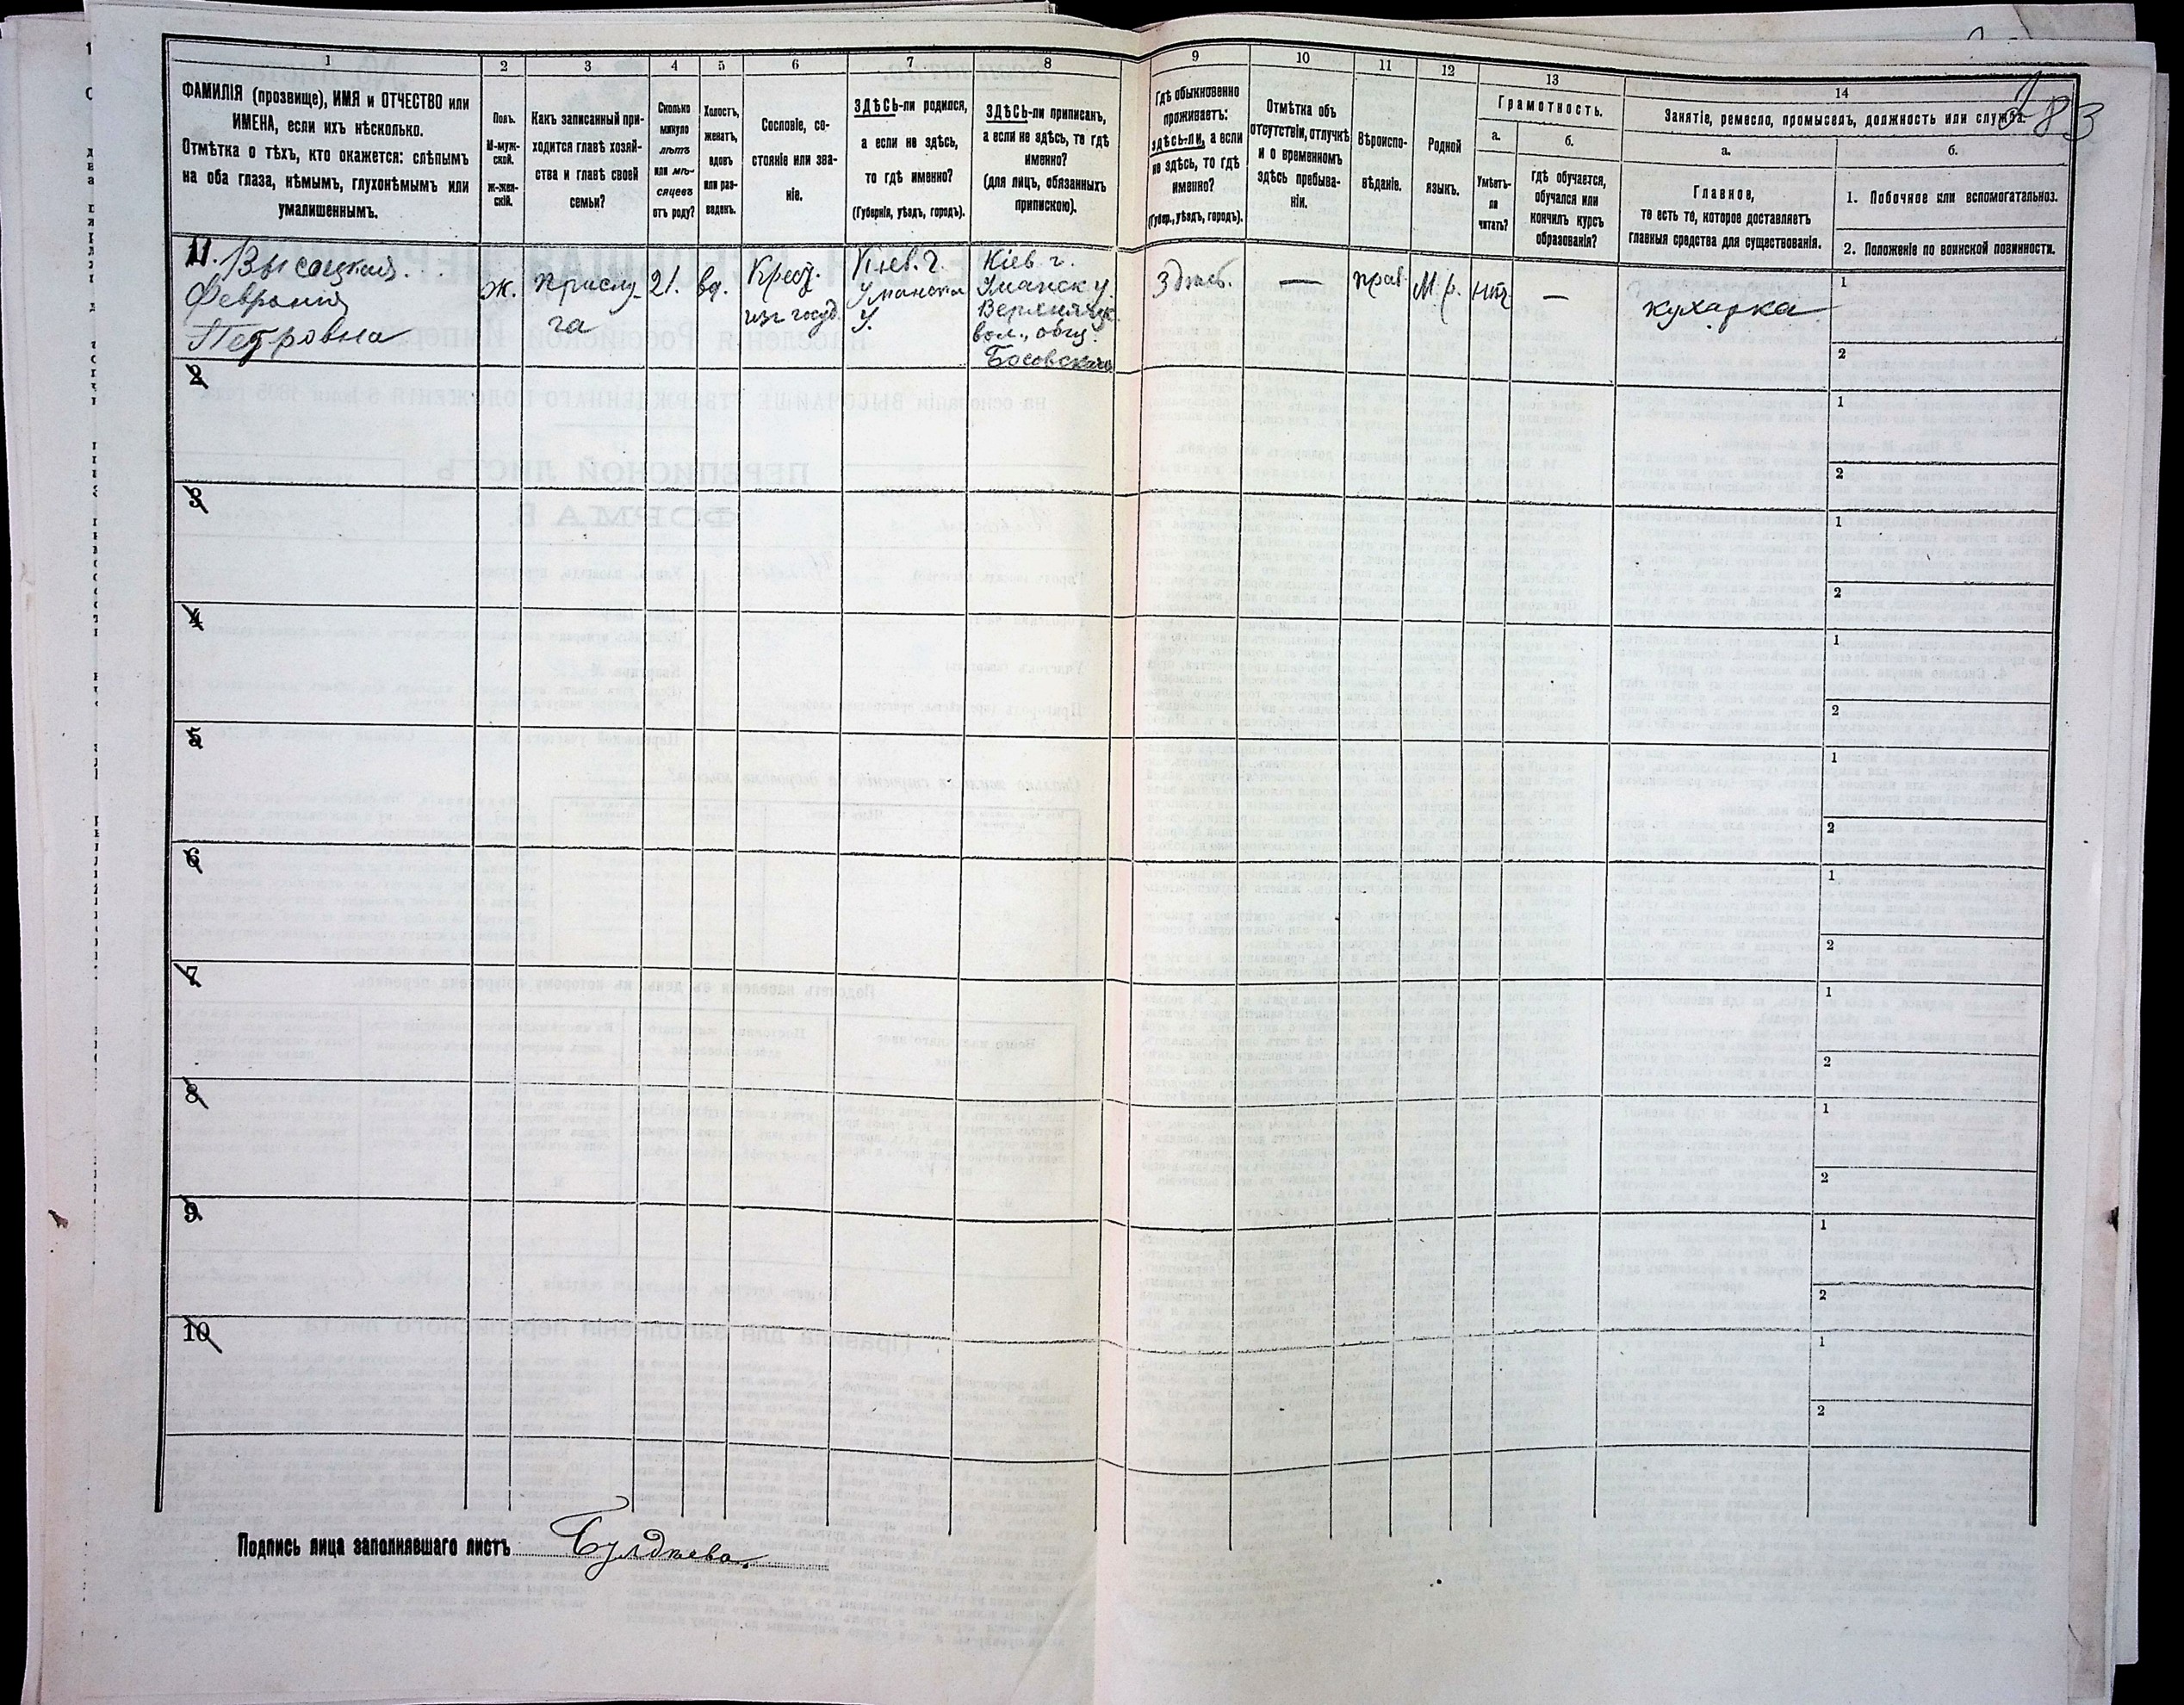 1 2 3 4 5 6 7 8 9 10 11 12 13 14
ФАМИЛІЯ (прозвище), ИМЯ и ОТЧЕСТВО или
ИМЕНА, если ихъ нѣсколько.
Отмѣтка о тѣхъ, кто окажется: слѣпымъ
на оба глаза, нѣмымъ, глухонѣмымъ или
умалишеннымъ.
Полъ.
М-муж-
ской.
ж-жен-
скій.
Какъ записанный при-
ходится главѣ хозяй-
ства и главѣ своей
семьи?
Сколько
минуло
лѣтъ
или мѣ-
сяцевъ
отъ роду?
Холостъ,
женатъ,
вдовъ
или раз-
веденъ.
Сословіе, со-
стояніе или зва-
ніе.
ЗДѢСЬ-ли родился,
а если не здѣсь,
то гдѣ именно?
(Губернія, уѣздъ, городъ).
ЗДѢСЬ-ли приписанъ,
а если не здѣсь, то гдѣ
именно?
(для лицъ, обязанныхъ
припискою).
Гдѣ обыкновенно
проживаетъ:
здѣсь-ли, а если
не здѣсь, то гдѣ
именно?
(Губер., уѣздъ, городъ).
Отмѣтка объ
отсутствіи, отлучкѣ
и о временномъ
здѣсь пребыва-
ніи.
Вѣроиспо-
вѣданіе.
Родной
языкъ.
Грамотность.
а.
Умѣетъ-
ли
читать?
б.
гдѣ обучается,
обучался или
кончилъ курсъ
образованія?
Занятіе, ремесло, промыселъ, должность или служба.
83
а.
Главное,
то есть то, которое доставляетъ
главныя средства для существованія.
б.
1. Побочное или вспомогательное.
2. Положеніе по воинской повинности.
11. Высоцкая
Февронія
Петровна
ж.
прислу-
га
21.
вд.
Крест.
изъ госуд.
Кіев. г.
Уманска
у.
Кіев г.
Уманск у.
вол., общ.
Босовскаго
Здѣсь.
—
прав.
М. р.
нѣтъ
—
кухарка
1
2
2
1
2
3
1
2
4
1
2
5
1
2
6
1
2
7
1
2
8
1
2
9
1
2
10
1
2
Подпись лица заполнявшаго листъ